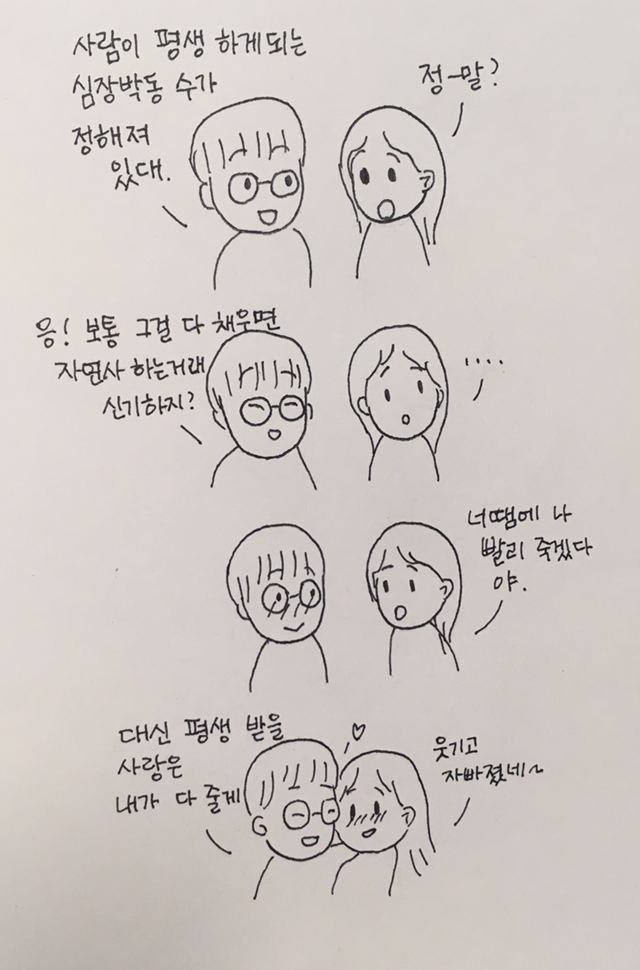 사람이 평생 하게되는
심장박동 수가
정해져
있대.
정~말?
응! 보통 그걸 다 채우면
자연사 하는거래
신기하지?
....
너땜에 나
빨리 죽겠다
야.
대신 평생 받을
사랑은
내가 다 줄게
웃기고
자빠졌네~